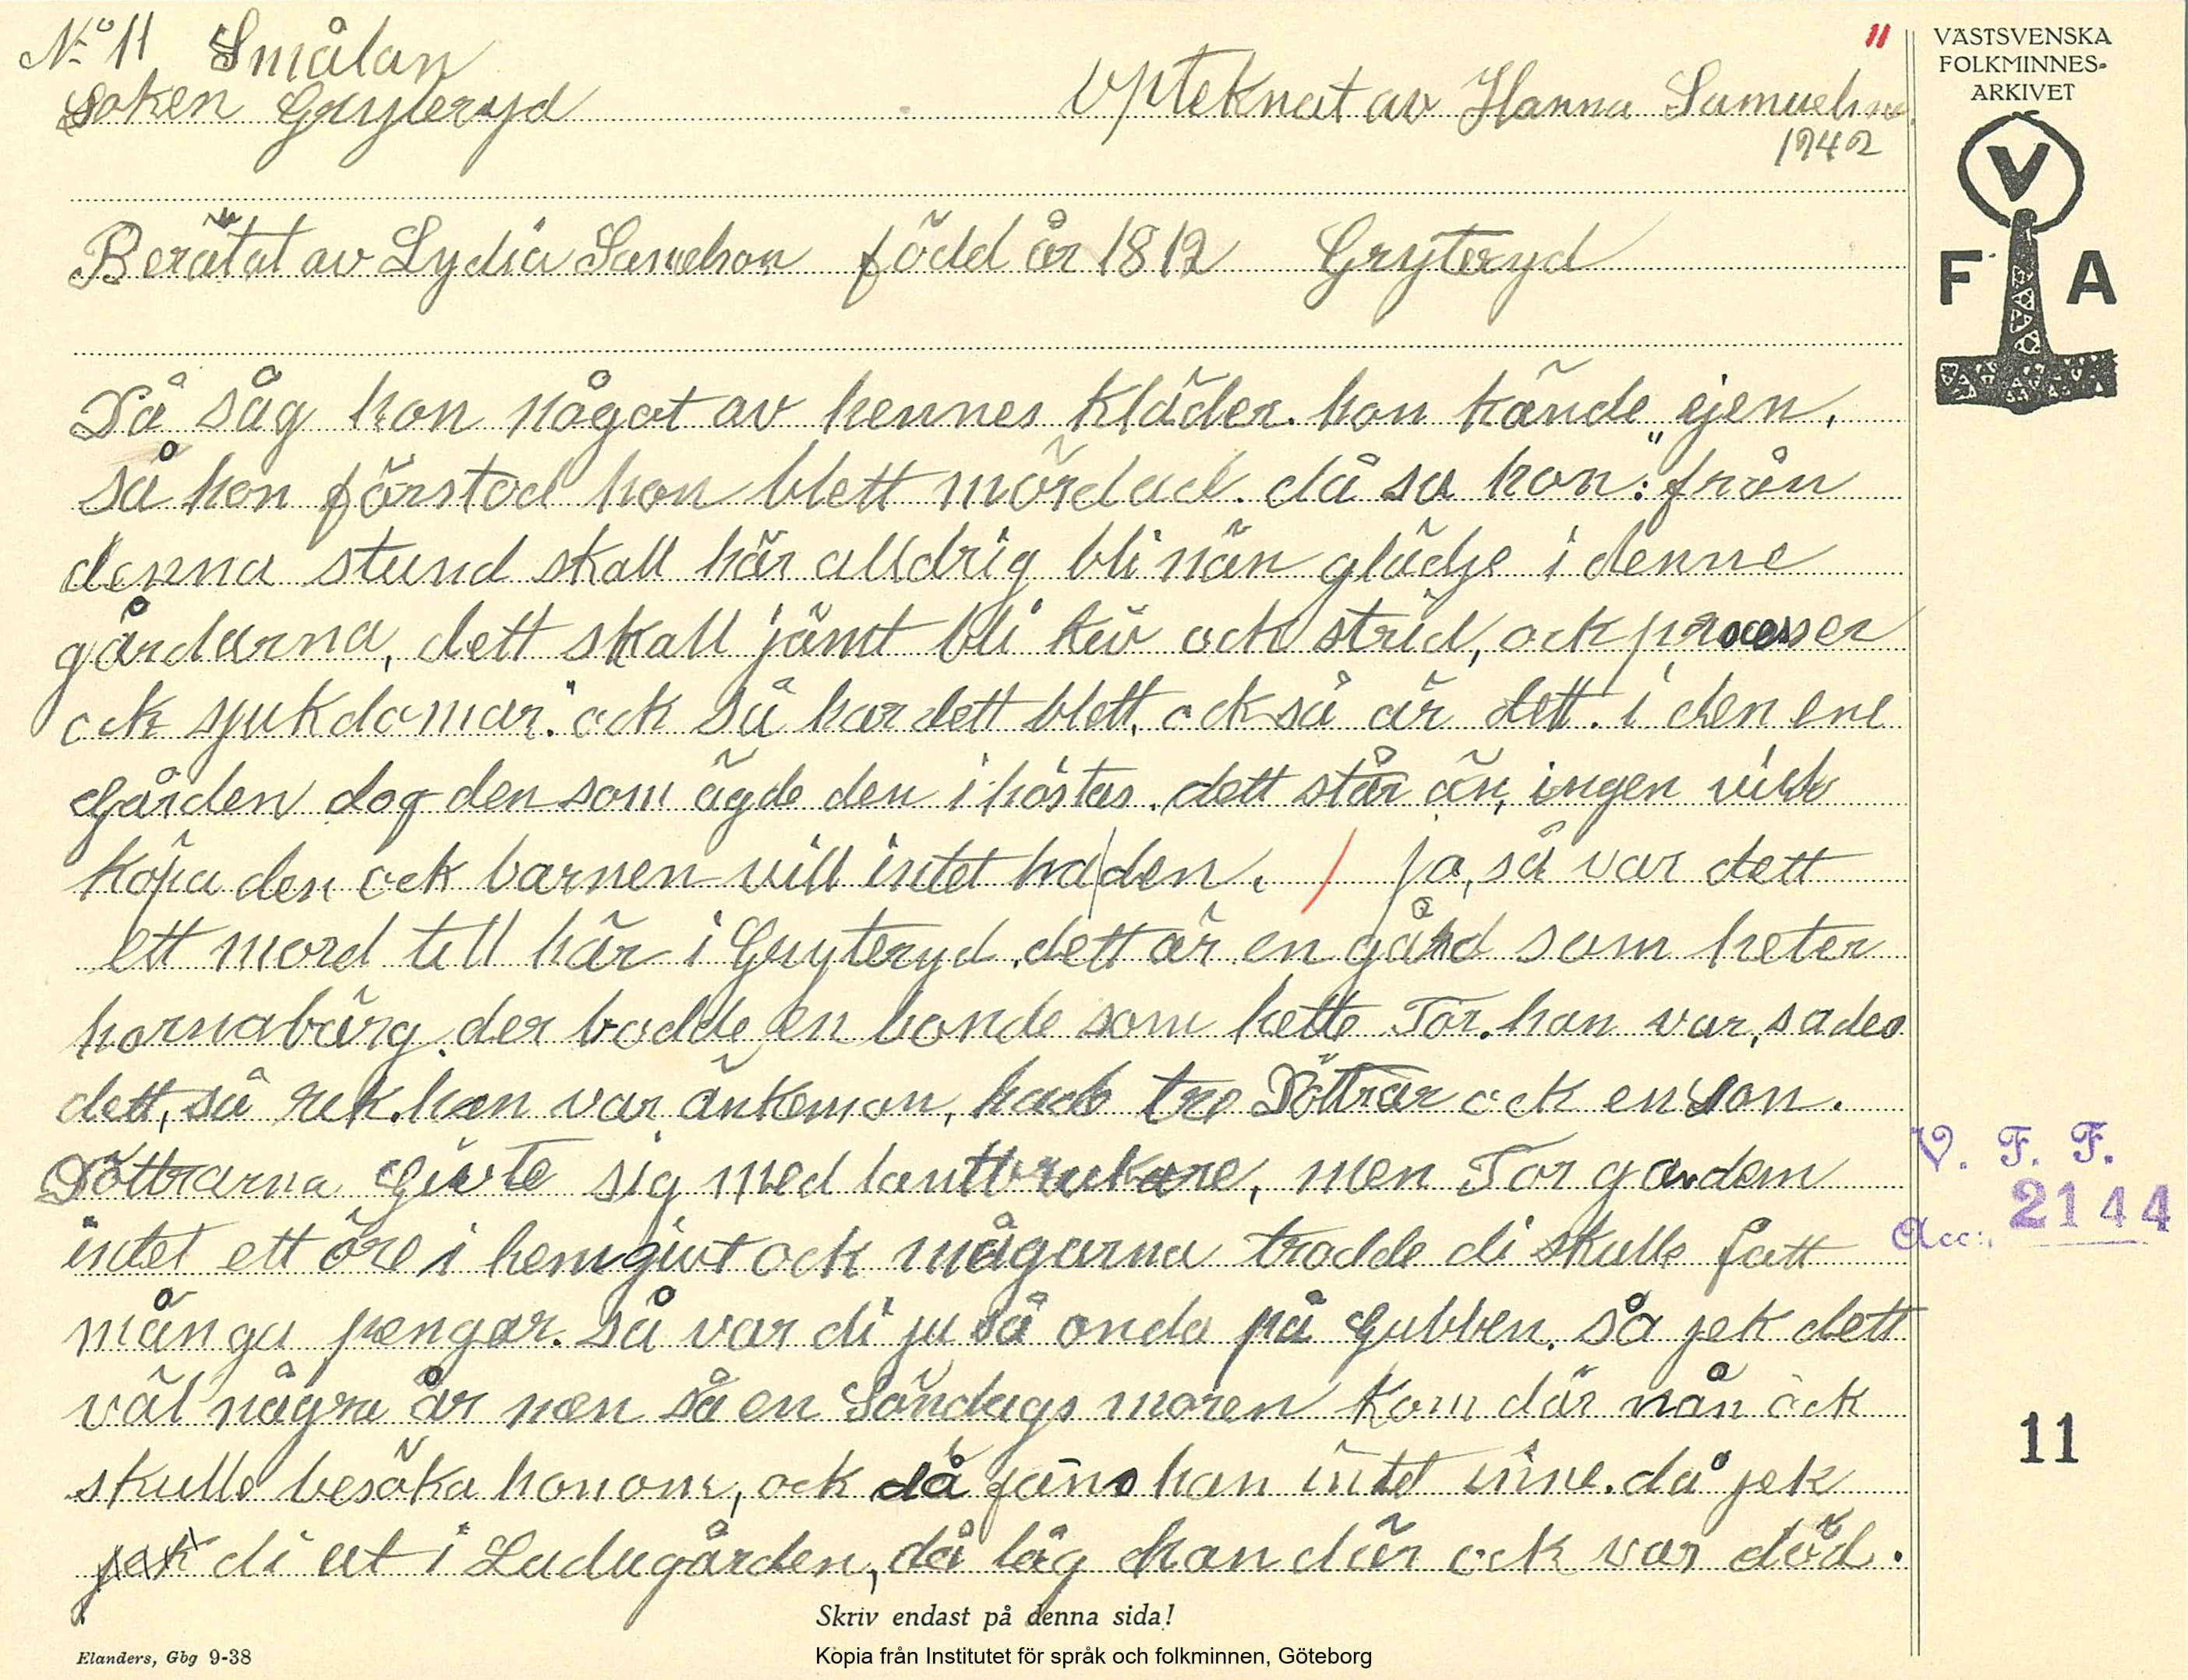 No 11 Smålan
Soken Gryteryd
Upteknat av Hanna Samuelson
1942
11
VÄSTSVENSKA
FOLKMINNES-
ARKIVET
V
F A
Berätat av Lydia Samelson född år 1812 Gryteryd
Då såg hon något av hennes kläder. hon kände ejen,
så hon förstod hon blett mördad. då sa hon: "från
denna stund skall här alldrig bli nån glädje i denne
gårdarna, dett skall jämt bli kiv ock strid, ock processer
ock sjukdomar." ock så har dett blett, ock så är dett. i den ene
Gården dog den som ägde den i höstas. dett står än, ingen vill
köpa den ock barnen vill intet ha den. / Ja, så var dett
ett mord till här i Gryteryd. dett är en gård som heter
hornabärg. der bodde en bonde som hette Tor. han var, sades
dett, så rik. han var änkeman, hade tre Döttrar ock en son.
Döttrarna Givte sig med lantbrukare, men Tor gav dem
intet ett öre i hemgivt ock mågarna trodde di skulle fått
många pengar. Så var di ju så onda på Gubben. så jek dett
väl några år men så en Söndags moren kom där nån ock
skulle besöka honom, ock då fans han intet inne. då jek
jek di ut i Ladugården, då låg han där ock var död.
V. F. F.
Acc: 2144
11
Skriv endast på denna sida!
Elanders, Gbg 9-38
Kopia från Institutet för språk och folkminnen, Göteborg